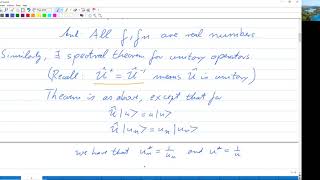 And All f, fn are real numbers
Similarly, ∃ spectral theorem for unitary operators
(Recall: Û† = Û⁻¹ means Û is unitary)
Theorem is as above, except that for
Û |u⟩ = u |u⟩
Û |uₙ⟩ = uₙ |uₙ⟩
we have that uₙ* = 1/uₙ and u* = 1/u